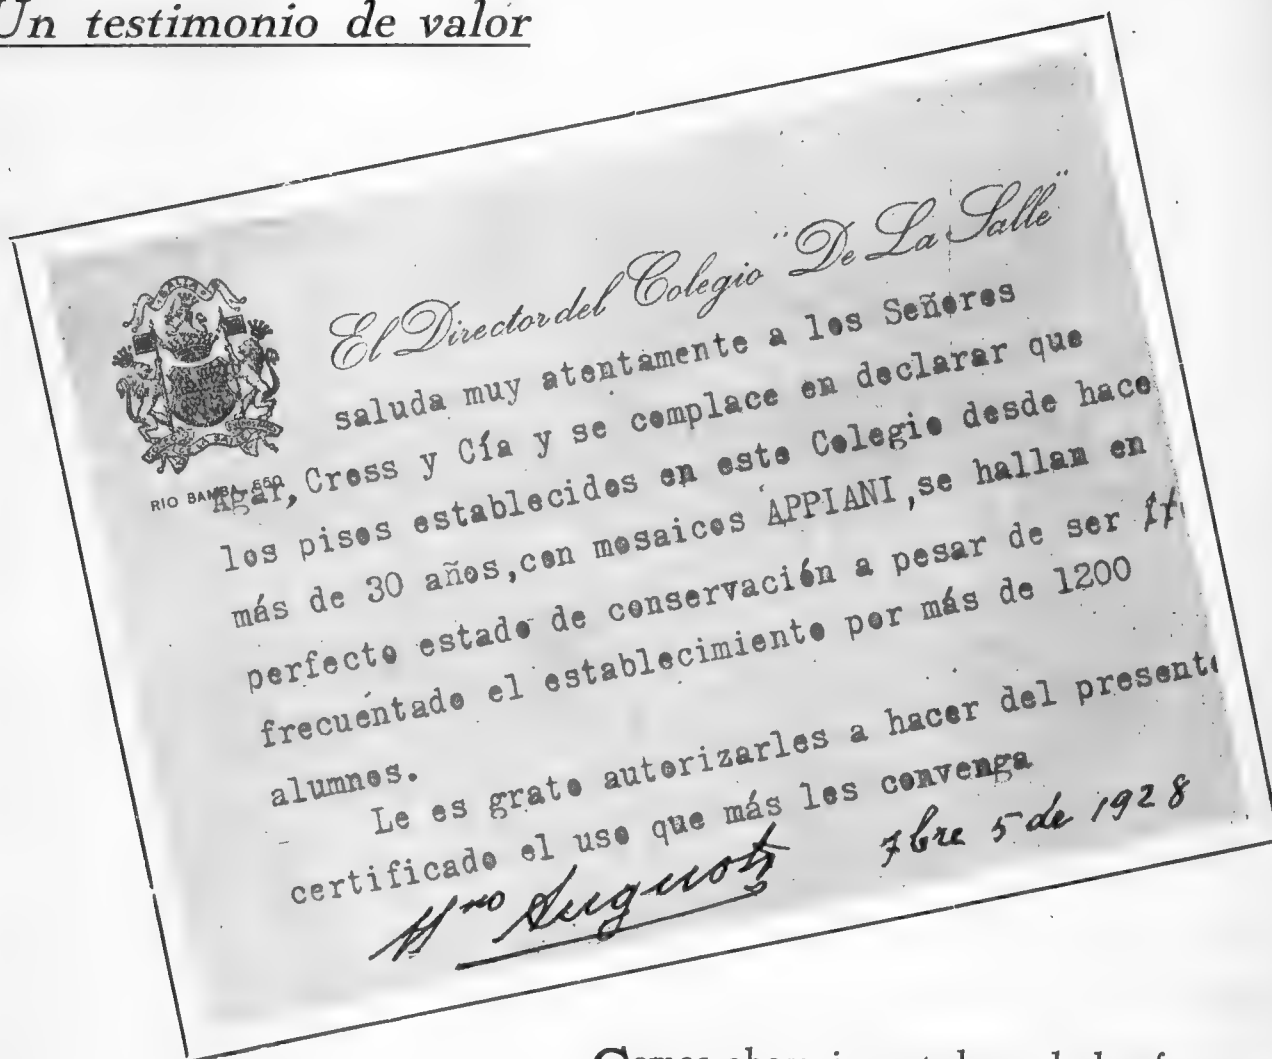 Un testimonio de valor
El Director del Colegio "De La Salle"
saluda muy atentamente a los Señores
RIO BAMBA 650
Agar, Cross y Cía y se complace en declarar que
los pisos establecidos en este Colegio desde hace
más de 30 años, con mosaicos APPIANI, se hallan en
perfecto estado de conservación a pesar de ser
frecuentado el establecimiento por más de 1200
alumnos.
Le es grato autorizarles a hacer del presente
certificado el uso que más les convenga
Hno Augusto
7bre 5 de 1928